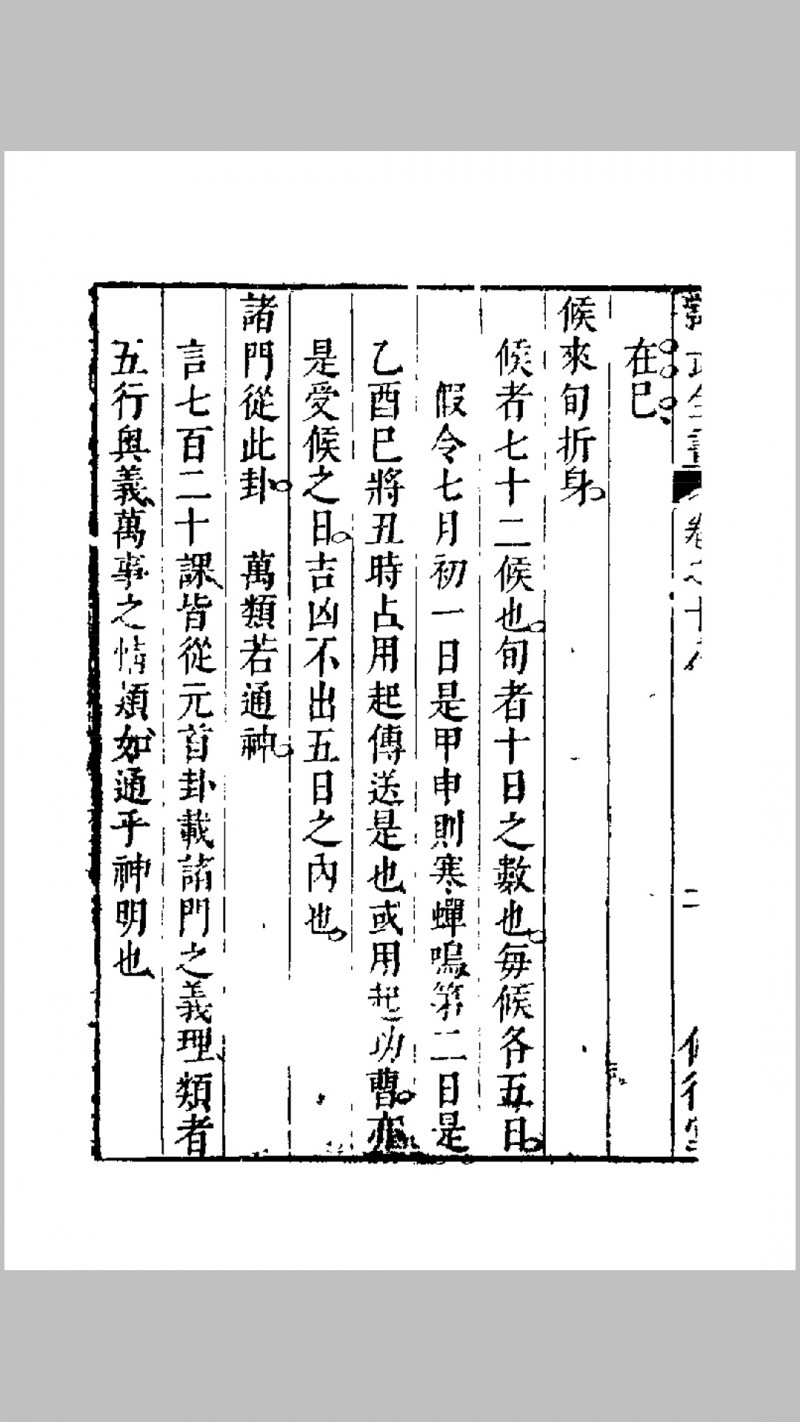 在巳
候來旬折身
候者七十二候也旬者十日之數也每候各五日
假令七月初一日是甲申則寒蟬鳴第二日是
乙酉巳將丑時占用起傳送是也或用起功曹亦
是受候之日吉凶不出五日之內也
諸門從此卦　萬類若通神
言七百二十課皆從元首卦載諸門之義理類者
五行奧義萬事之情類如通乎神明也